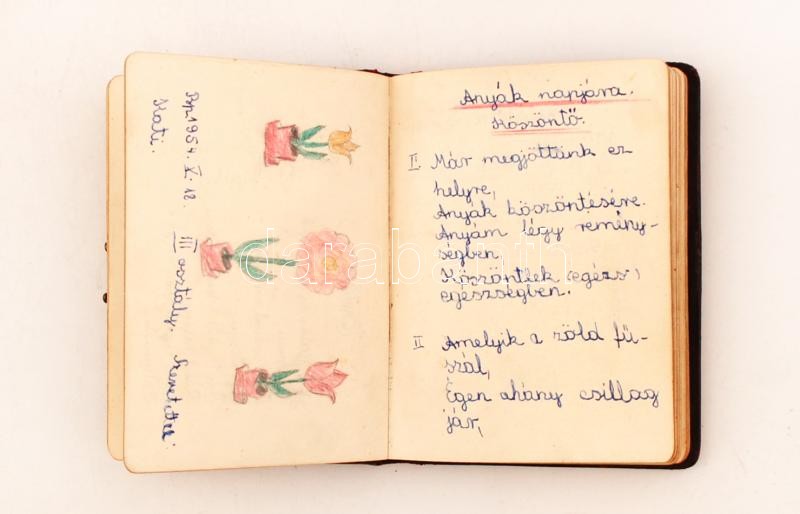 Bp. 1954. V. 12.
Kati.
III osztály. Szeretettel
Anyák napjára.
Köszöntő.
I. Már megjöttünk ez
helyre,
Anyák köszöntésére.
Anyám légy remény-
ségben,
Köszöntlek (egézs)
egészségben.
II Amelyik a zöld fű-
szál,
Égen ahány csillag
jár,
darabanth